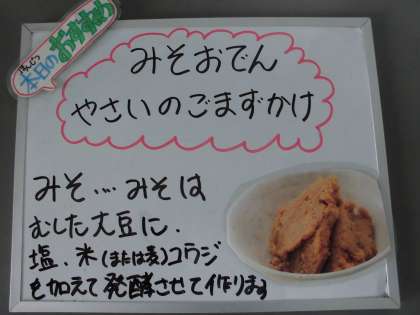 ほんじつ
本日の
おすすめ
みそおでん
やさいのごまずかけ
みそ…みそは
むした大豆に、
塩、米(または麦)コウジ
を加えて発酵させて作ります